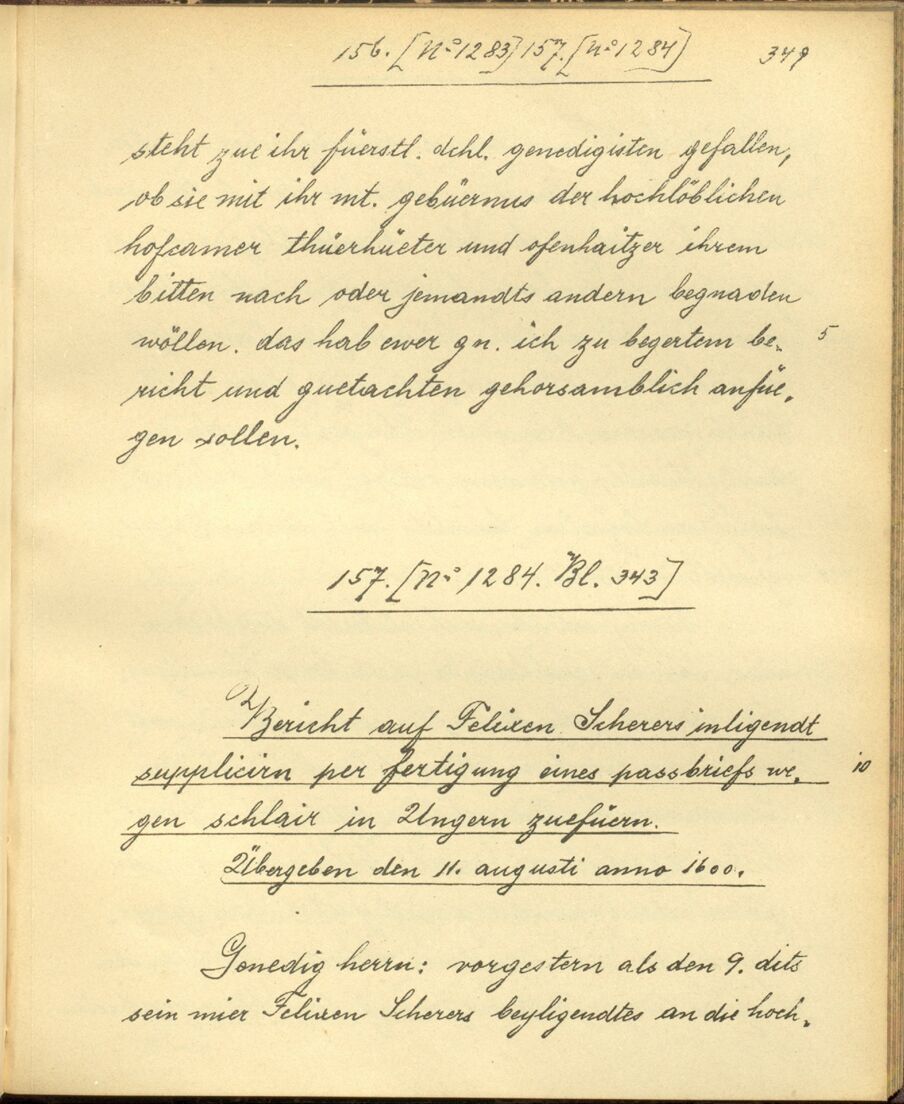 156. [No 1283] 157. [No 1284] 349
steht zue ihr füerstl. dchl. genedigisten gefallen,
ob sie mit ihr mt. gebüernus der hochlöblichen
hofcamer thüerhüeter und ofenhaitzer ihrem
bitten nach oder jemandts andern begnaden
wöllen. das hab ewer gn. ich zu begertem be- 5
richt und guetachten gehorsamblich anfüe-
gen sollen.
157. [No 1284. Bl. 343]
Bericht auf Felixen Scherers inligendt
supplicirn per fertigung eines passbriefs we- 10
gen schlair in Ungern zuefüern.
Übergeben den 11. augusti anno 1600.
Genedig herrn: vorgestern als den 9. dits
sein mier Felixen Scherers beyligendtes an die hoch-